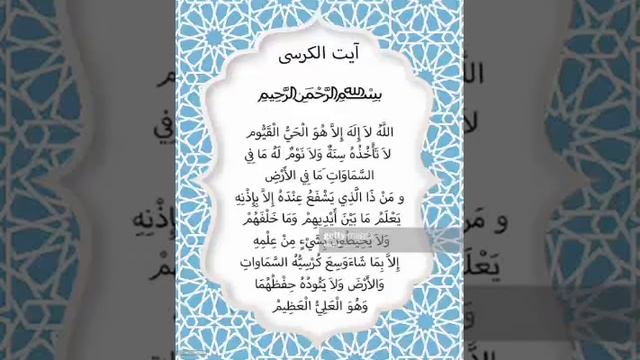 آیت الکرسی
بسم الله الرحمن الرحيم
اللَّهُ لاَ إِلَهَ إِلاَّ هُوَ الْحَيُّ الْقَيُّوم
لاَ تَأْخُذُهُ سِنَةٌ وَلاَ نَوْمٌ لَهُ مَا فِي
السَّمَاوَاتِ مَا فِي الأَرْضِ
و مَنْ ذَا الَّذِي يَشْفَعُ عِنْدَهُ إِلاَّ بِإِذْنِهِ
يَعْلَمُ مَا بَيْنَ أَيْدِيهِمْ وَمَا خَلْفَهُمْ
وَلاَ يُحِيطُونَ بِشَيْءٍ مِنْ عِلْمِهِ
إِلاَّ بِمَا شَاءَ وَسِعَ كُرْسِيُّهُ السَّمَاوَاتِ
وَالأَرْضَ وَلاَ يَئُودُهُ حِفْظُهُمَا
وَهُوَ الْعَلِيُّ الْعَظِيمْ
gettyimages